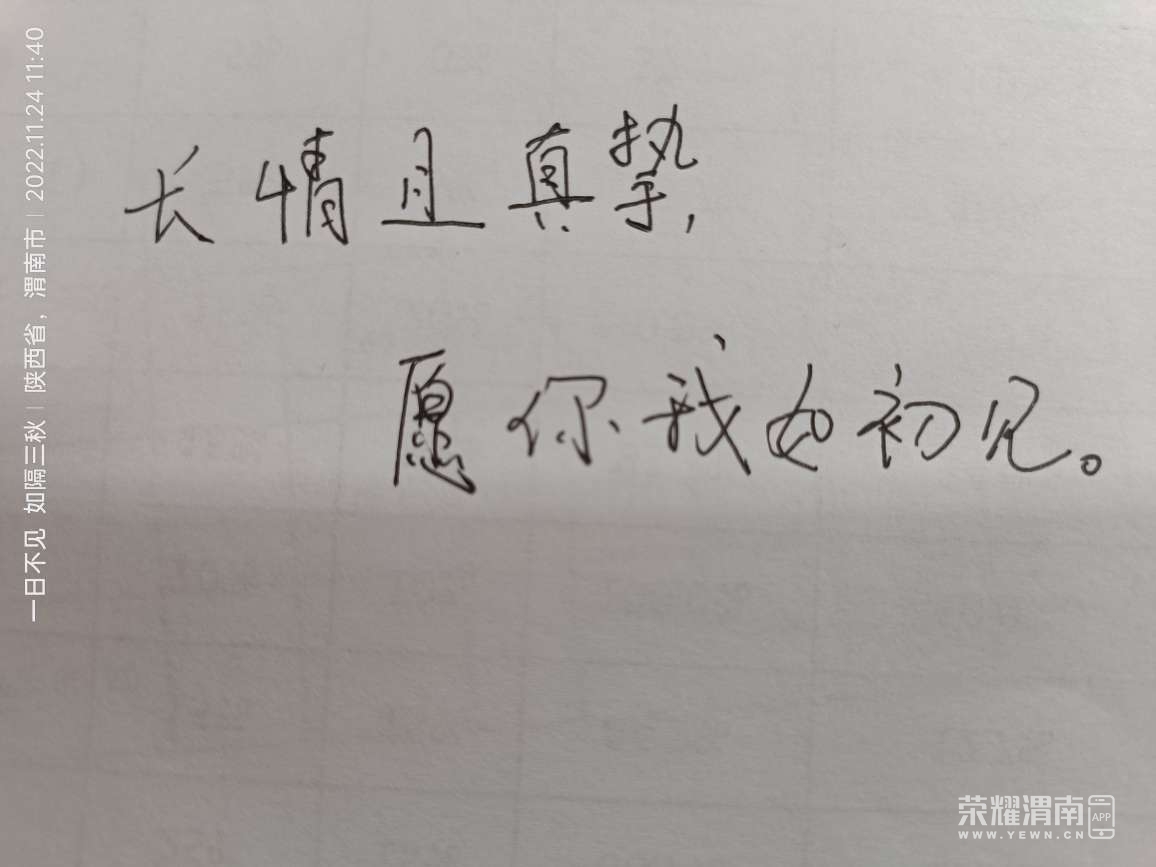 长情且真挚,
愿你我如初见。
一日不见 如隔三秋 | 陕西省，渭南市 | 2022.11.24 11:40
荣耀渭南 APP
WWW.YEWN.CN